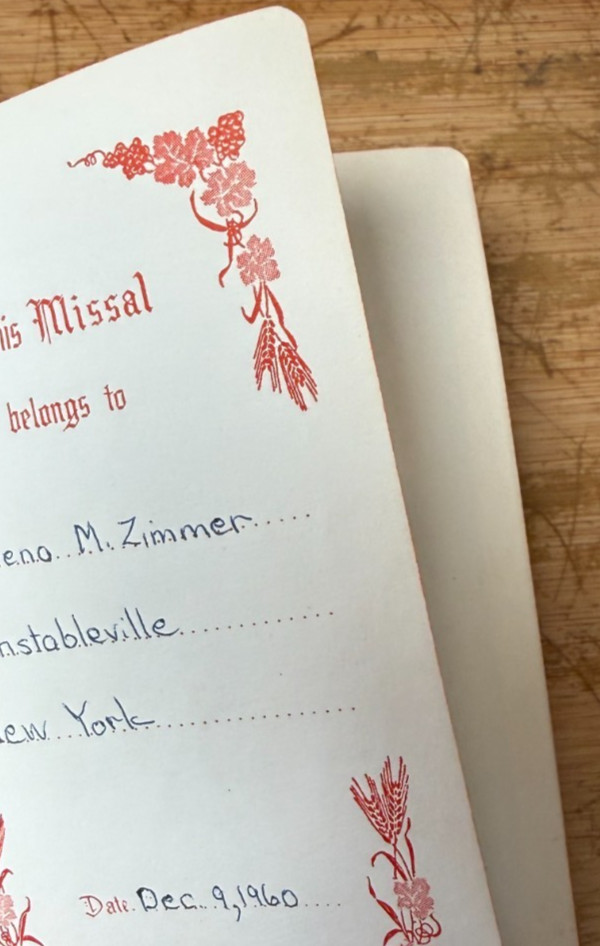 his Missal
belongs to
eno M. Zimmer
nstableville
ew York
Date Dec. 9, 1960